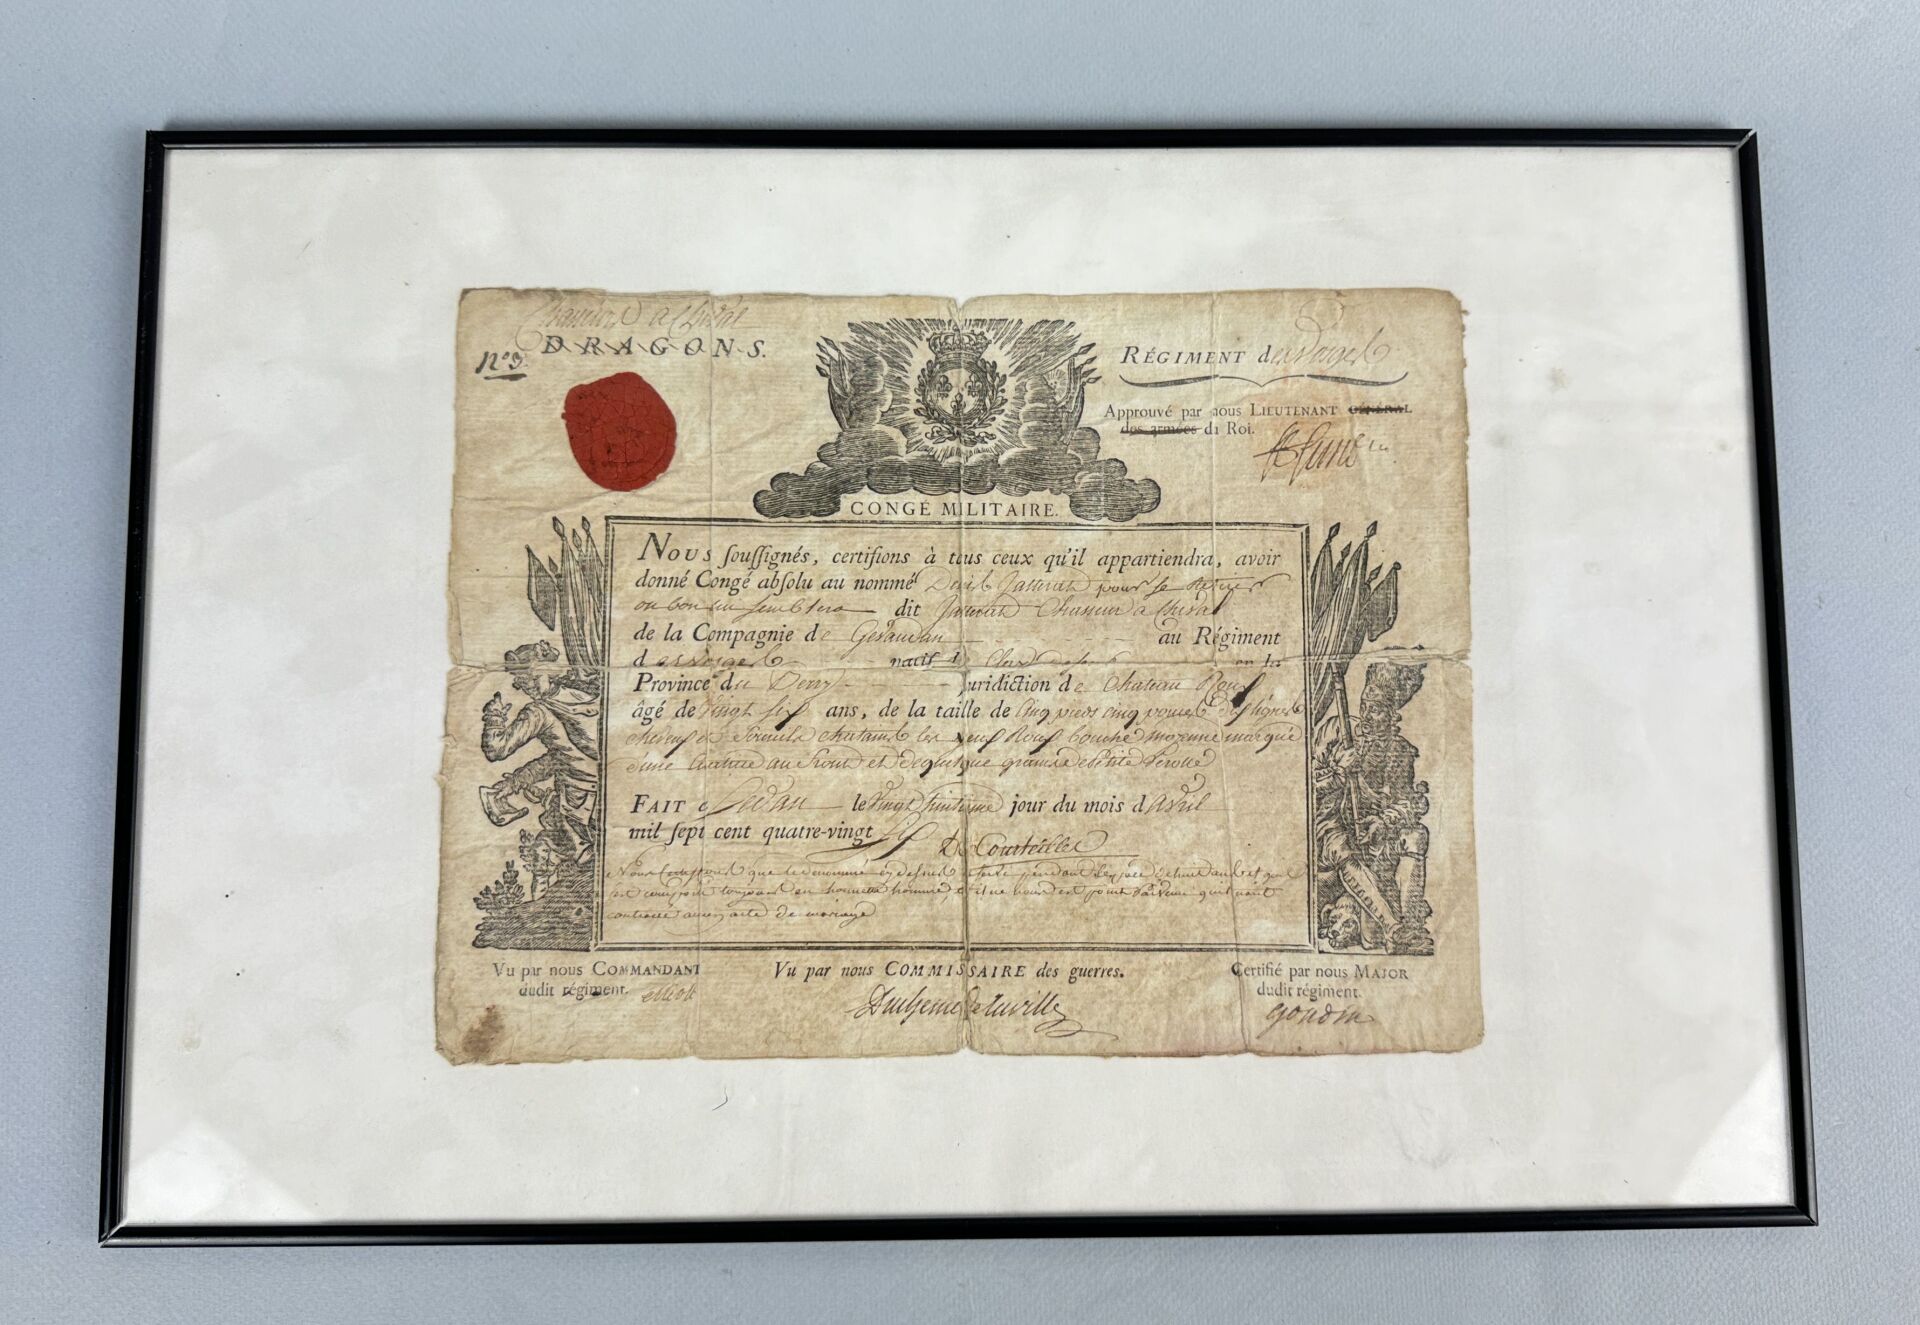 Chasseurs a cheval
N° 3. DRAGONS.
RÉGIMENT des Vosges
Approuvé par nous LIEUTENANT GÉNÉRAL
des armées du Roi.
CONGÉ MILITAIRE.
NOUS souſſignés, certifions à tous ceux qu'il appartiendra, avoir
donné Congé abſolu au nommé Denis pour se retirer
ou bon lui semblera dit Chasseur a Cheval
de la Compagnie de Gevaudan au Régiment
des Vosges natif d en la
Province du Berry juridiction de Chateau Roux
âgé de vingt six ans, de la taille de cinq pieds cinq pouces lignes
cheveux et sourcils chatains les yeux Roux bouche moyenne marqué
d'une au front et de quelque grains de petite Verolle
FAIT a Sedan le vingt huitieme jour du mois d'avril
mil ſept cent quatre-vingt six De Courteilles
Nous certifions que le denommé cy dessus a servi pendant
s'est comporté toujours en honnette homme, et il ne nous est point parvenu qu'il ait
contracté aucun acte de mariage
Vu par nous COMMANDANT
dudit régiment.
Vu par nous COMMISSAIRE des guerres.
Certifié par nous MAJOR
dudit régiment.
goudin